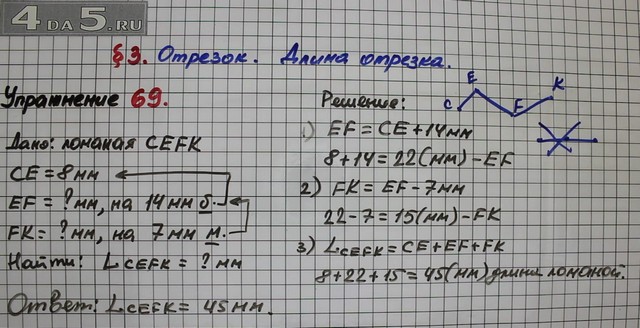 4 DA 5.RU
§3. Отрезок. Длина отрезка.
Упражнение 69.
Дано: ломаная CEFK
CE = 8 мм
EF = ? мм, на 14 мм б.
FK = ? мм, на 7 мм м.
Найти: L CEFK = ? мм
Ответ: L CEFK = 45 мм.
Решение:
C E F K
1) EF = CE + 14 мм
8 + 14 = 22 (мм) - EF
2) FK = EF - 7 мм
22 - 7 = 15 (мм) - FK
3) L CEFK = CE + EF + FK
8 + 22 + 15 = 45 (мм) длина ломаной.